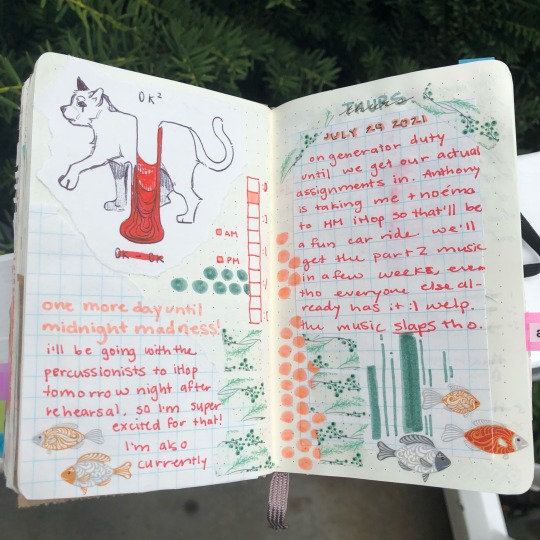 OK²
OK - OK
AM
PM
one more day until
midnight madness!
i'll be going with the
percussionists to iHop
tomorrow night after
rehearsal, so i'm super
excited for that!
I'm also
currently
THURS
JULY 29 2021
on generator duty
until we get our actual
assignments in. Anthony
is taking me + noema
to MM iHop so that'll be
a fun car ride. we'll
get the part 2 music
in a few weeks even
tho everyone else al-
ready has it :/ welp.
the music slaps tho.